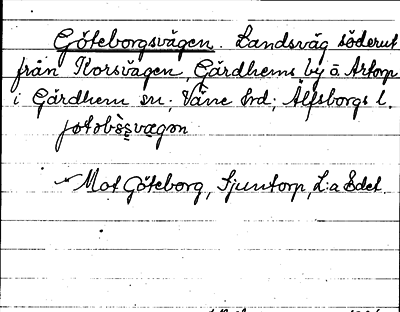 Göteborgsvägen. Landsväg söderut
från Korsvägen, Gärdhems by å Artorp
i Gärdhem sn; Väne hrd; Älfsborgs l.
jøtobòs̀svægon
Mot Göteborg, Sjuntorp, L:a Edet.